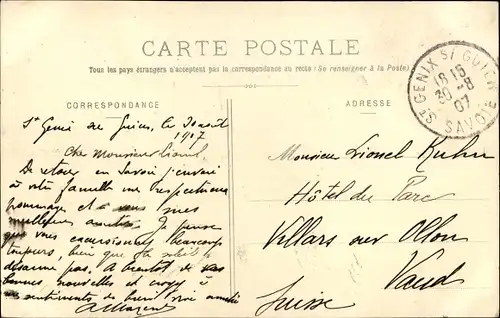 CARTE POSTALE
Tous les pays étrangers n'acceptent pas la correspondance au recto (Se renseigner à la Poste)
CORRESPONDANCE
ADRESSE
ST GENIX S/ GUIERS
18 15
30 -8
07
SAVOIE
St Genix sur Guiers, le 30 août
1907
Cher Monsieur Lionel,
De retour en Savoie j'envoie
à votre famille mes respectueux
hommages et à vous mes
meilleures amitiés. Je pense
que vous excursionnez beaucoup
toujours, bien que le soleil
pas. A bientôt de vos
bonnes nouvelles et croyez à
sentiments de bien vive amitié
Monsieur Lionel Kuhn
Hôtel du Parc
Villars sur Ollon
Vaud
Suisse